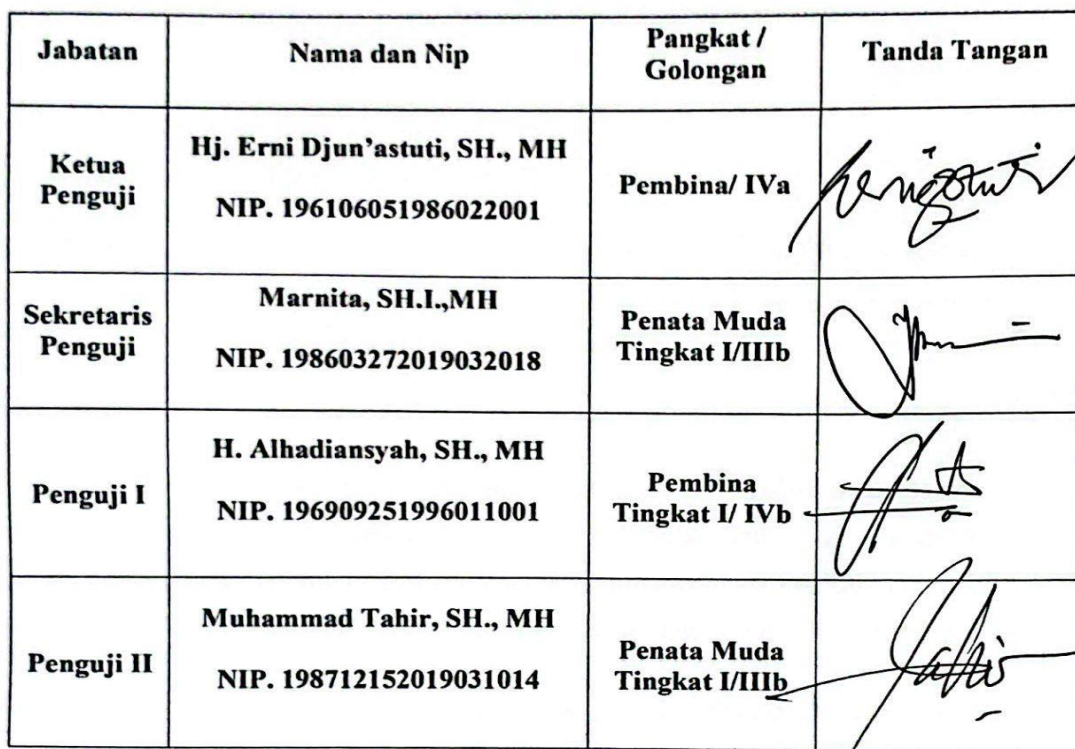 Jabatan
Nama dan Nip
Pangkat /
Golongan
Tanda Tangan
Ketua
Penguji
Hj. Erni Djun'astuti, SH., MH
NIP. 196106051986022001
Pembina/ IVa
Sekretaris
Penguji
Marnita, SH.I.,MH
NIP. 198603272019032018
Penata Muda
Tingkat I/IIIb
Penguji I
H. Alhadiansyah, SH., MH
NIP. 196909251996011001
Pembina
Tingkat I/ IVb
Penguji II
Muhammad Tahir, SH., MH
NIP. 198712152019031014
Penata Muda
Tingkat I/IIIb